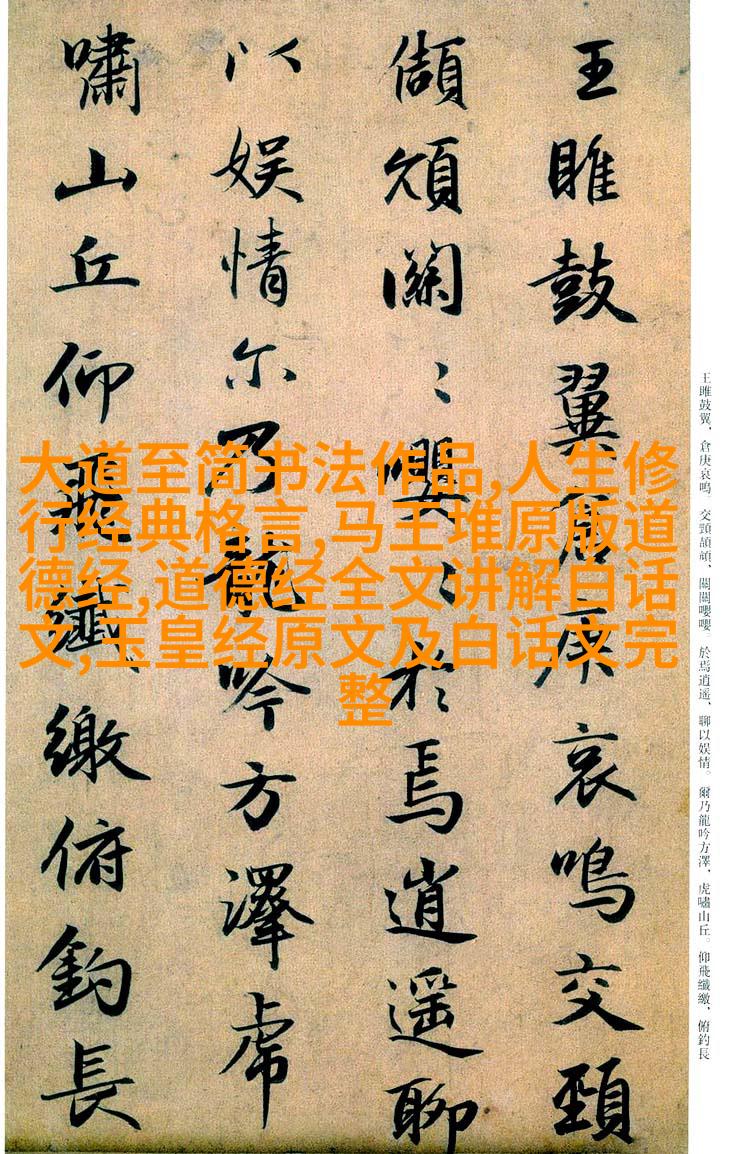 王雎鼓翼倉庚哀鳴交頸
頡頏關〻嚶〻於焉逍遥聊
以娱情尔乃龍吟方澤虎
嘯山丘仰飛纖繳俯釣長
王雎鼓翼，倉庚哀鳴。交頸頡頏，關關嚶嚶。於焉逍遥，聊以娱情。爾乃龍吟方澤，虎嘯山丘。仰飛纖繳，俯釣長
大道至简书法作品,人生修
行经典格言,马王堆原版道
德经,道德经全文讲解白话
文,玉皇经原文及白话文完
整